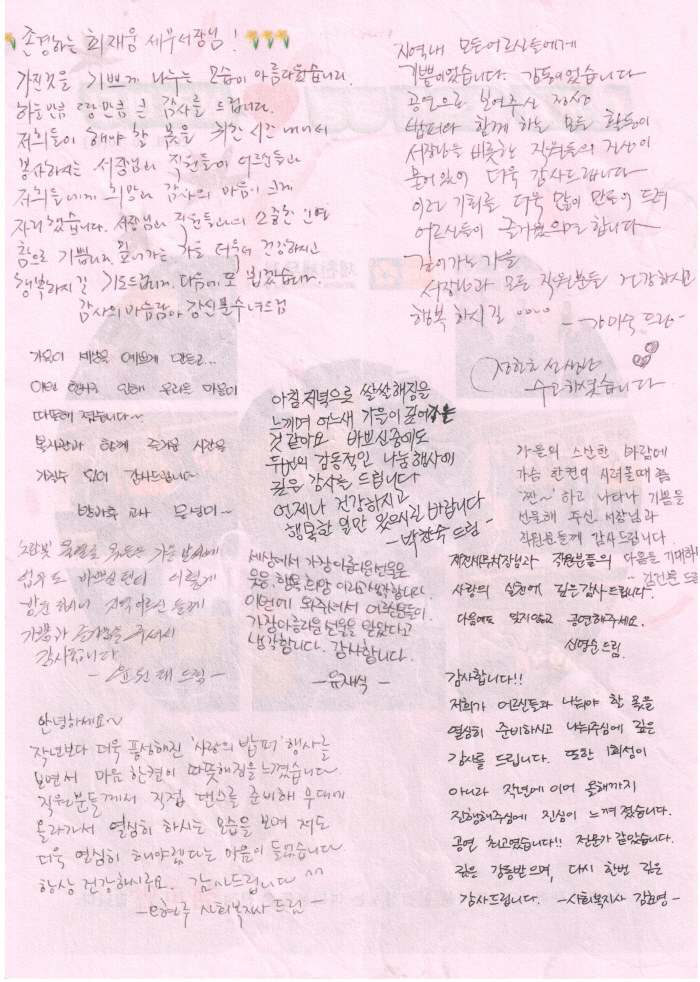 존경하는 최재웅 세무서장님!
가진것을 기쁘게 나누는 모습이 아름다웠습니다.
하늘만큼 땅만큼 큰 감사를 드립니다.
저희들이 해야 할 몫을 귀한 시간 내셔서
봉사하시는 서장님과 직원들이 어르신들과
저희들에게 희망과 감사의 마음이 크게
자리 했습니다. 서장님과 직원들과의 소중한 인연
참으로 기쁩니다. 깊어가는 가을 더욱더 건강하시고
행복하시길 기도드립니다. 다음에 또 뵙겠습니다.
감사의 마음 담아 수녀드림
지역내 모든어르신들에게
기쁨이었습니다. 감동이었습니다
공연으로 보여주신 정성
밥퍼와 함께 하는 모든 활동이
서장님을 비롯한 직원들의 진심이
묻어있어 더욱 감사드립니다
이런 기회를 더욱 많이 만들어 드려
어르신들이 즐거웠으면 합니다
깊어가는 가을
서장님과 모든 직원분들 건강하시고
행복 하시길 ....
- 강미숙 드림 -
수고하셨습니다
가을이 세상을 예쁘게 만들고...
이번 행사로 인해 우리들 마음이
따뜻해 졌습니다~
복지관과 함께 즐거운 시간을
가져주셔서 감사드립니다
방과후 교사
아침저녁으로 쌀쌀해짐을
느끼며 어느새 가을이 깊어가는
것 같아요 바쁘신중에도
두번의 감동적인 나눔행사에
깊은 감사를 드립니다
언제나 건강하시고
행복한 일만 있으시길 바랍니다
- 박찬숙 드림 -
가을의 스산한 바람에
가슴 한켠이 시려올때 쯤
"짠~" 하고 나타나 기쁨을
선물해 주신 서장님과
직원분들께 감사드립니다.
다음을 기대하며
김건분 드림
가을 날씨에
업무도 바쁘실텐데 이렇게
방문 하시어 지역 어르신들께
기쁨과 즐거움을 주셔서
감사합니다
- 윤원태 드림 -
세상에서 가장 아름다운 선물은
웃음, 행복, 희망 이라고 생각합니다.
이번에 와주셔서 어르신들이
가장아름다운 선물을 받았다고
생각합니다. 감사합니다.
- 유재식 -
제천세무서장님과 직원분들의
사랑의 실천에 깊은감사드립니다.
다음에도 잊지않고 공연해주세요.
신영순 드림.
안녕하세요~
작년보다 더욱 풍성해진 '사랑의 밥퍼' 행사를
보면서 마음 한켠이 따뜻해짐을 느꼈습니다.
직원분들께서 직접 댄스를 준비해 무대에
올라가서 열심히 하시는 모습을 보며 저도
더욱 열심히 해야겠다는 마음이 들었습니다
항상 건강하시구요. 감사드립니다 ^^
- 이현주 사회복지사 드림 -
감사합니다!!
저희가 어르신들과 나눠야 할 몫을
열심히 준비하시고 나눠주심에 깊은
감사를 드립니다. 또한 1회성이
아니라 작년에 이어 올해까지
진행해주심에 진심이 느껴졌습니다.
공연 최고였습니다!! 전문가 같았습니다.
깊은 감동받으며, 다시 한번 깊은
감사드립니다. - 사회복지사 김효영 -